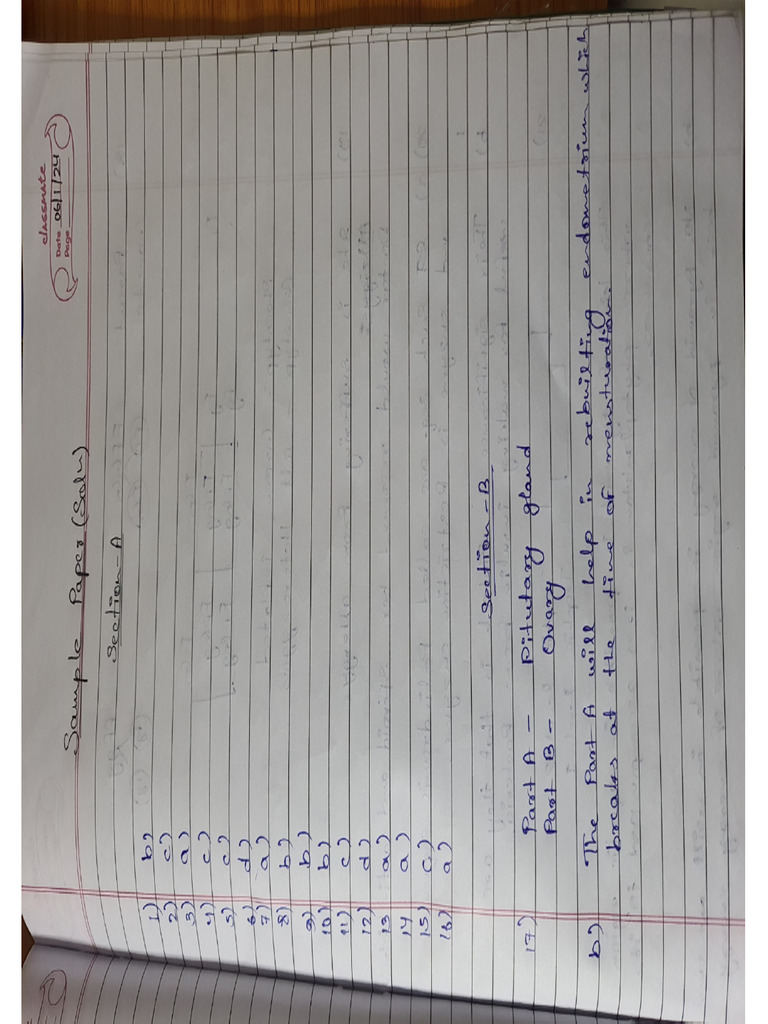 classmate
Date 06/1/24
Page
Sample Paper (Soln)
Section-A
1) b)
2) c)
3) a)
4) c)
5) c)
6) d)
7) a)
8) b)
9) b)
10) b)
11) c)
12) d)
13 a)
14 a)
15) c)
16) a)
Section-B
17) Part A - Pitutary gland
Part B - Ovary
b) The Part A will help in rebuilting endometrium which
breaks at the time of mensturation.